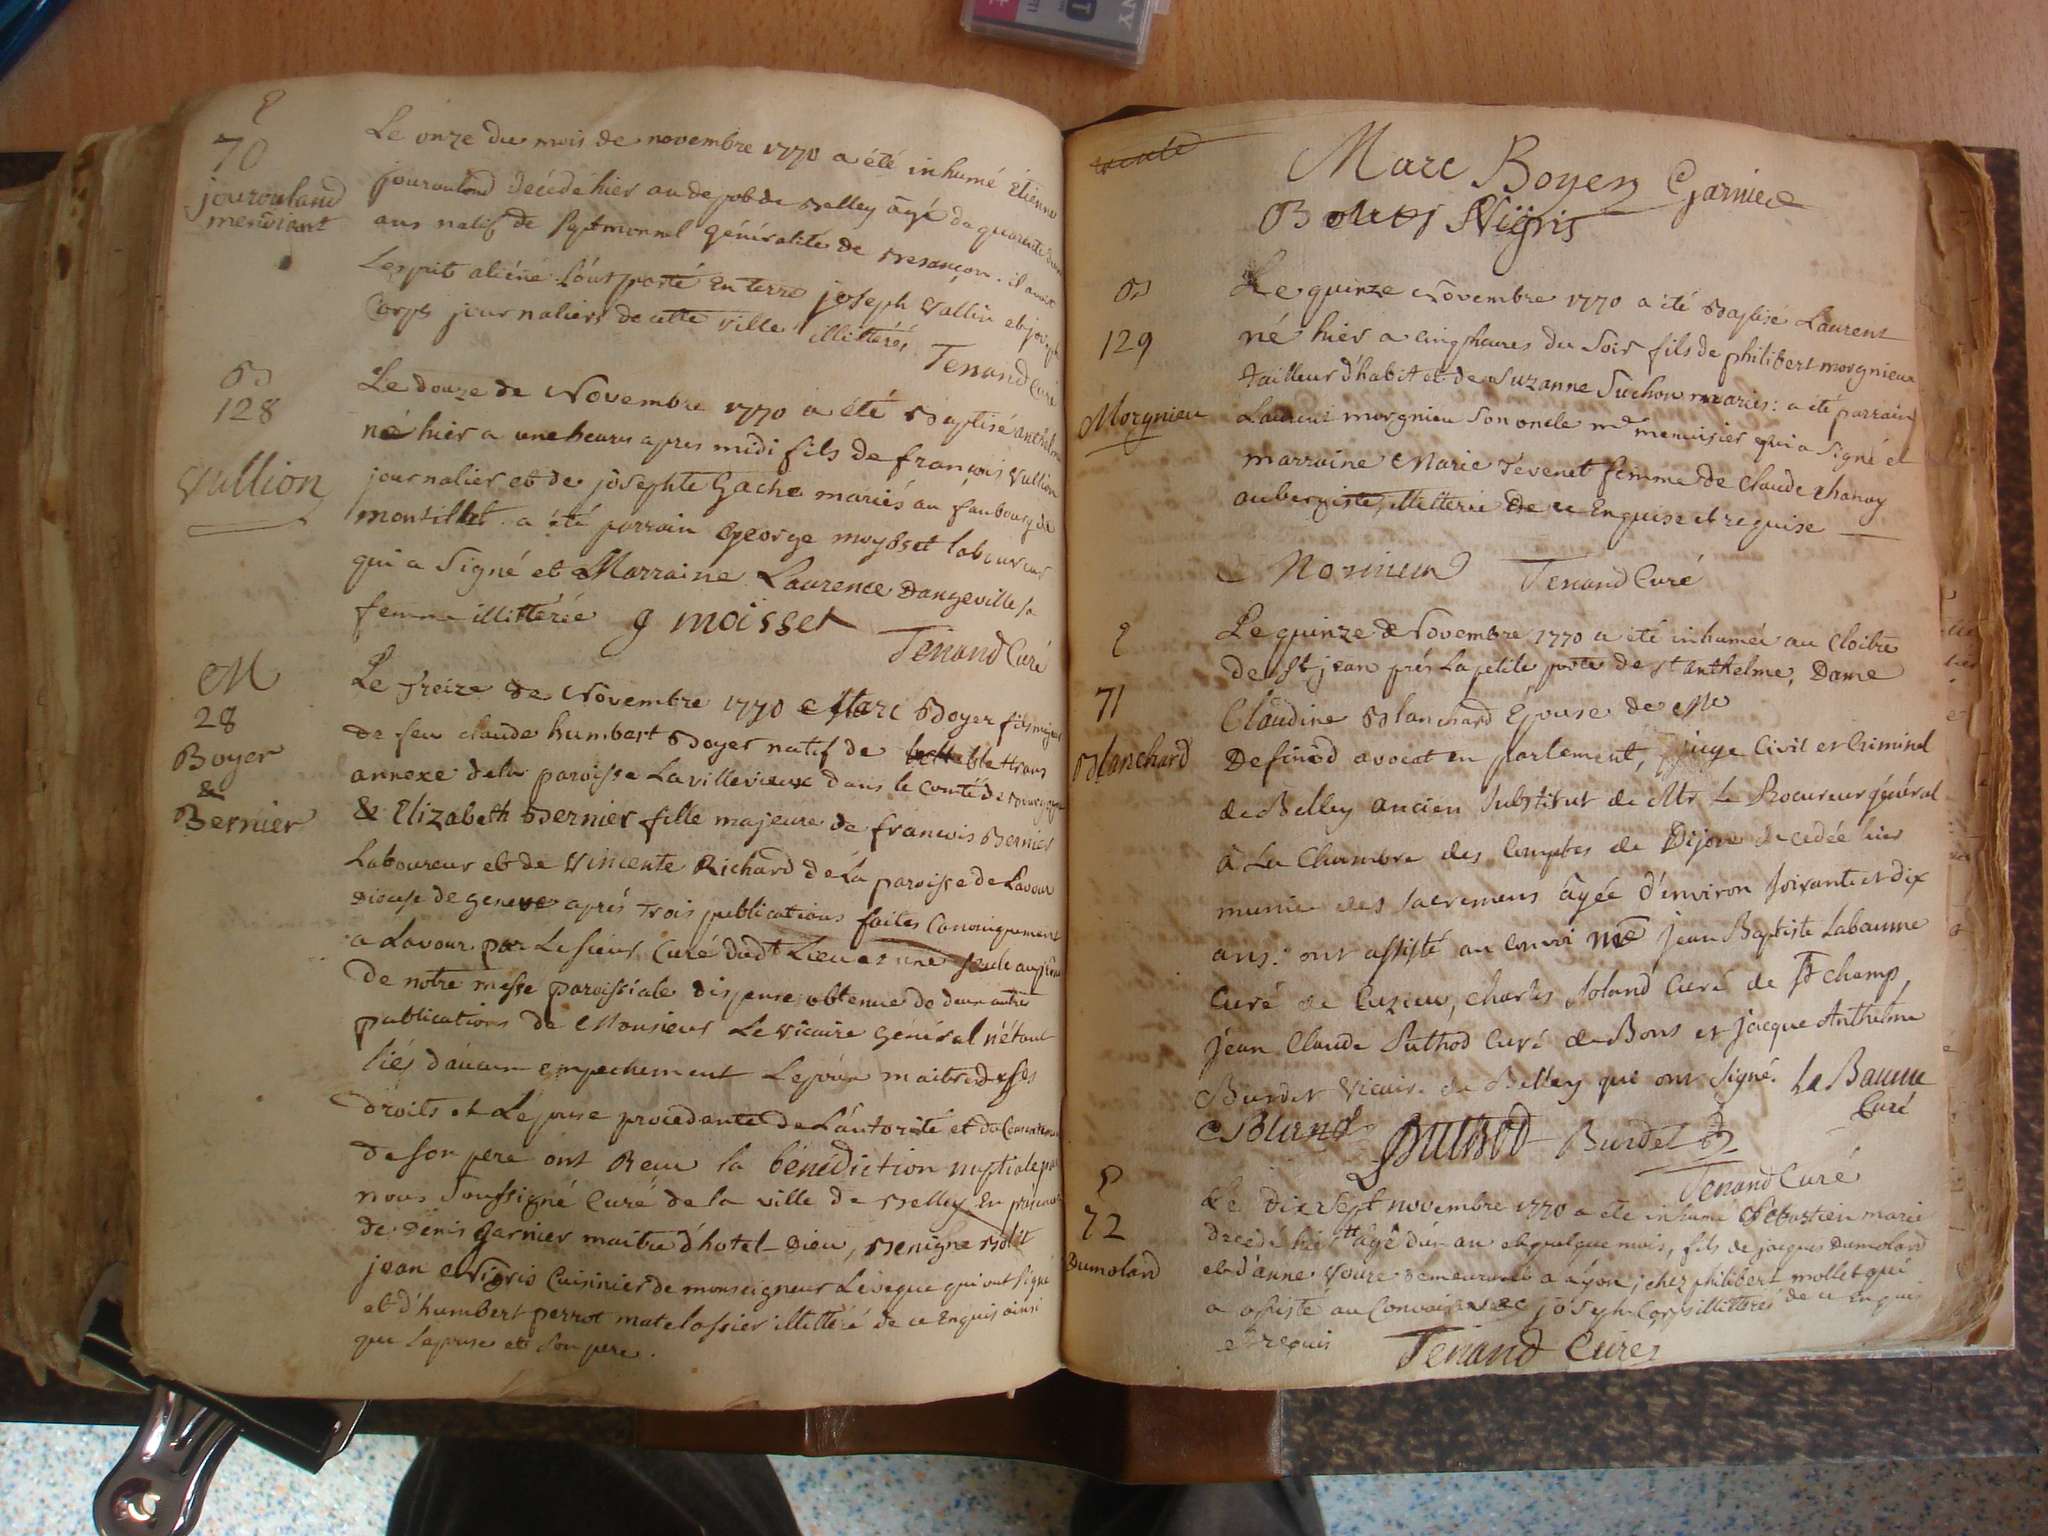 70
jourouland
mendiant
Le onze du mois de novembre 1770 a été inhumé Etienne
jourouland decédé hier au depob de Belley âgé de quarente
ans natif de generalité de Besançon. il avoit
L'esprit aliéné. L'ont porté en terre joseph Vallin et joseph
Corps journaliers de cette ville illitterés
Tenand Curé
B
128
Vullion
Le douze de Novembre 1770 a été Baptisé anthelme
né hier a une heure apres midi fils de françois Vullion
journalier et de josephte Gache mariés au faubourg de
monsillet a été parrain George moysset laboureur
qui a Signé et Marraine Laurence Dangeville sa
femme illittérée g moisset
Tenand Curé
M
28
Boyer
&
Bernier
Le treize de Novembre 1770 Marc Boyer fils majeur
de feu claude humbert Boyer natif de
annexe de la paroisse Lavillevieux dans le comté de
& Elizabeth Bernier fille majeure de francois Bernier
Laboureur et de Vincente Richard de La paroisse de Lavour
Diocese de geneve aprés trois publications faites Canoniquement
a Lavour par Le sieur Curé dudt Lieu et une seule au prone
De notre messe paroissiale dispense obtenue de deux autres
publications de Monsieur Le vicaire général n'étant
liés d'aucun empechement Lepoux maitre de ses
Droits et L'épouse procedante de L'autorité et du Consentement
de son pere ont Recu la bénédiction nuptiale par
nous Soussigné Curé de la ville de Belley En présence
de Denis garnier maitre d'hotel-Dieu, Benigne Bolut
jean Nigris Cuisinier de monseigneur L'évêque qui ont signé
et d'humbert perrot matelassier illittéré de ce Enquis ainsi
que Lepouse et Son pere.
Marc Boyer Garnier
Bolut Nigris
B
129
Morgnieu
Le quinze Novembre 1770 a été Baptisé Laurent
né hier a cinq heures du Soir fils de philibert morgnieu
tailleur d'habit et de Suzanne Suchon mariés: a été parrain
Laurent morgnieu Son oncle md menuisier qui a Signé et
marraine Marie Tevenet femme de Claude Chanay
aubergiste, illitterée de ce Enquise et requise
Tenand Curé
71
Blanchard
Le quinze de Novembre 1770 a été inhumée au Cloitre
de St jean prés La petite porte de St Anthelme, Dame
Claudine Blanchard Epouse de Me
Definod avocat en parlement, juge Civil et Criminel
de Belley ancien substitut de Mr Le Procureur général
à La Chambre des Comptes de Dijon decedée hier
munie des sacremens âgée d'environ soixante et dix
ans: ont assisté au convoi Me jean Baptiste Labaume
Curé de Cuzieu, Charles Joland Curé de St champ,
jean Claude Puthod Curé de Bons et jacque Anthelme
Burdet Vicaire de Belley qui ont signé. La Baume
Curé
Puthod Burdet
Tenand Curé
72
Dumoland
Le dix sept novembre 1770 a ete inhumé Sebastien marie
decedé hier âgé d'un an et quelque mois, fils de jacques Dumoland
et d'anne Voure demeurants a Lyon; chez philibert mollet qui
a assisté au Convoi avec joseph Corps illitterés de ce Enquis
et requis
Tenand Curé